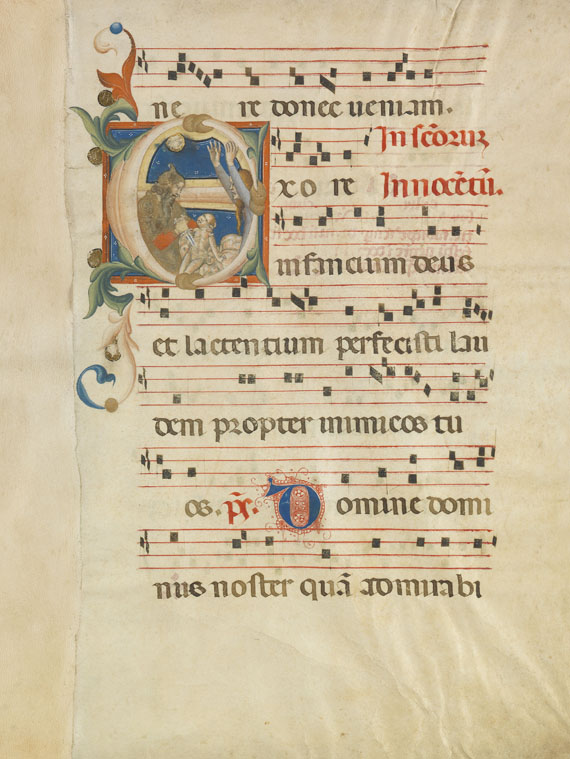 ne re donec ueniam.
In sc̄oruȝ
Exo re Innocētū.
infancium deus
et lactencium perfecisti lau
dem propter inimicos tu
os. ps̄. Domine domi
nus noster quā admirabi